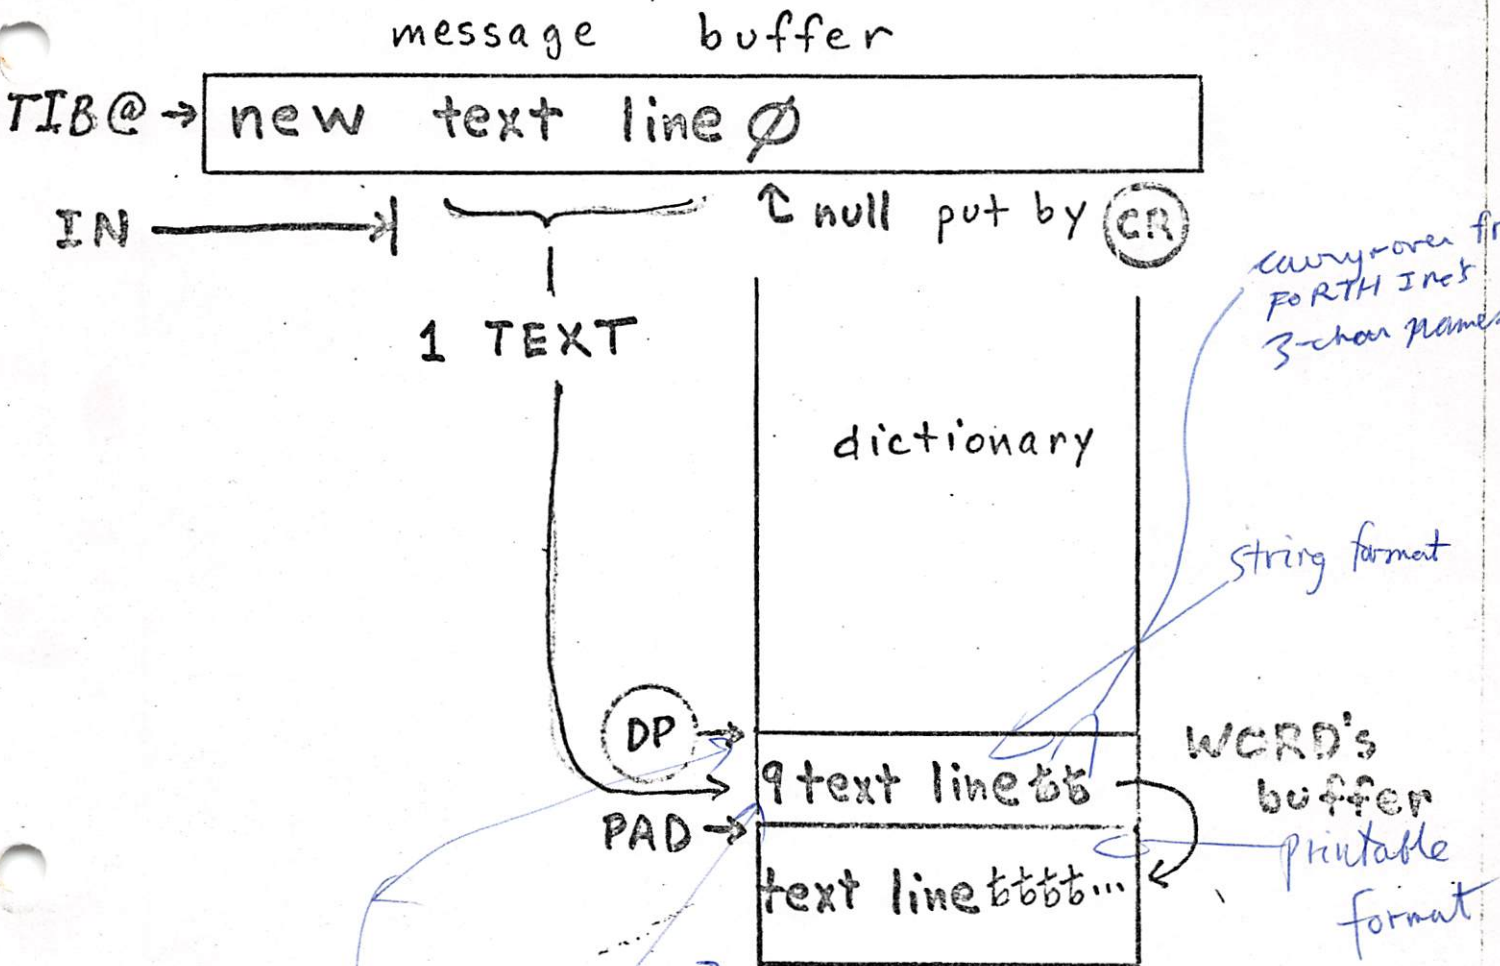 message buffer
TIB@ → new text line Ø
IN
↑ null put by CR
carry-over fr
FORTH Inc's
3-char names
1 TEXT
dictionary
string format
DP →
WORD's
buffer
9text lineƀƀ
PAD →
printable
format
text lineƀƀƀƀ...